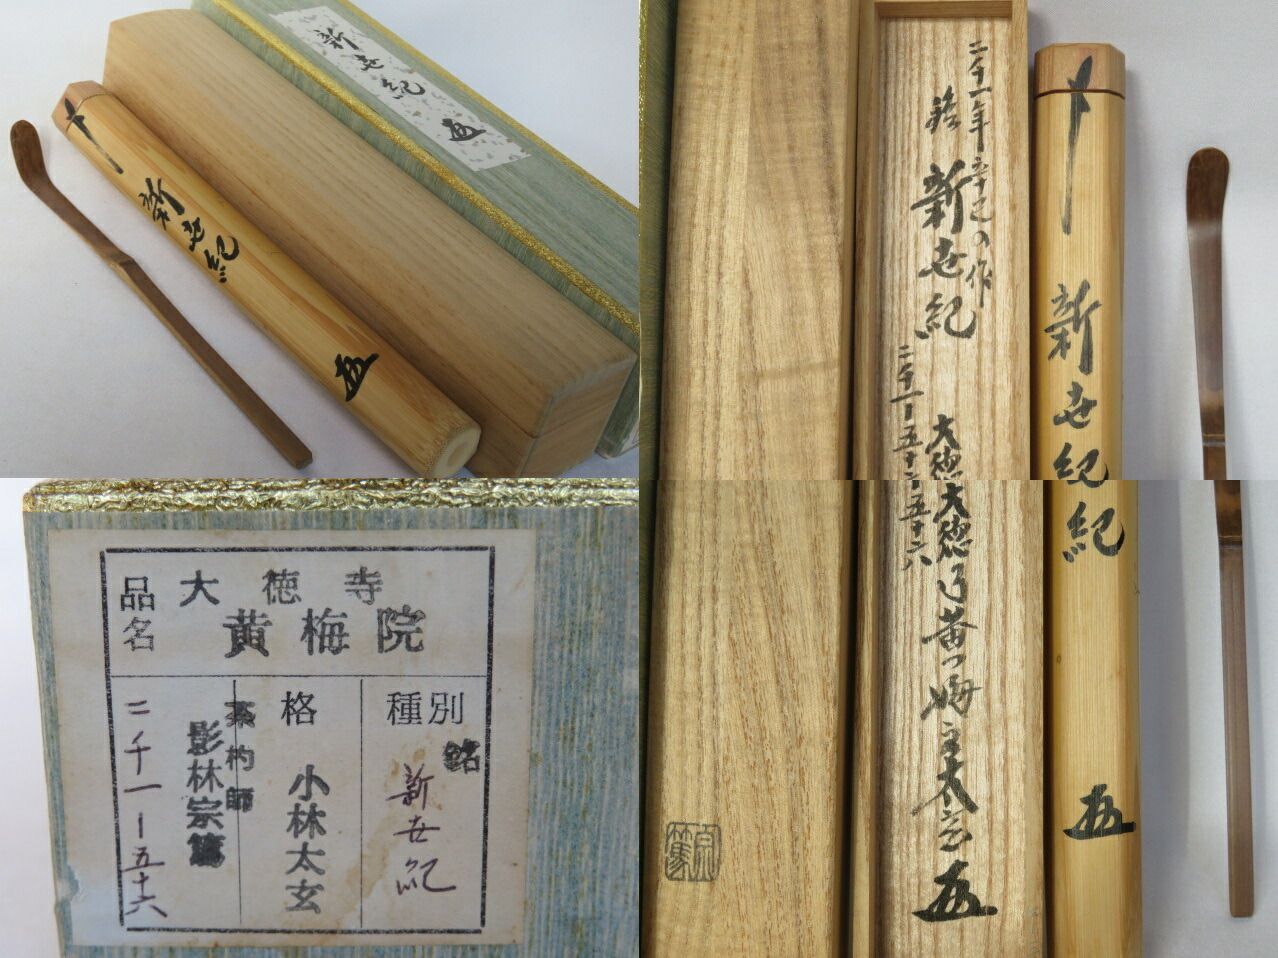 新世紀
新世紀
二千一年六十二の作
銘
新世紀
二千一ー五十ー五十六
大徳
大徳寺黄梅主太玄
新世紀
紀
品名
大徳寺
黄梅院
種別
銘
新世紀
格
小林太玄
茶杓師
影林宗篤
二千一ー五十六
宗篤